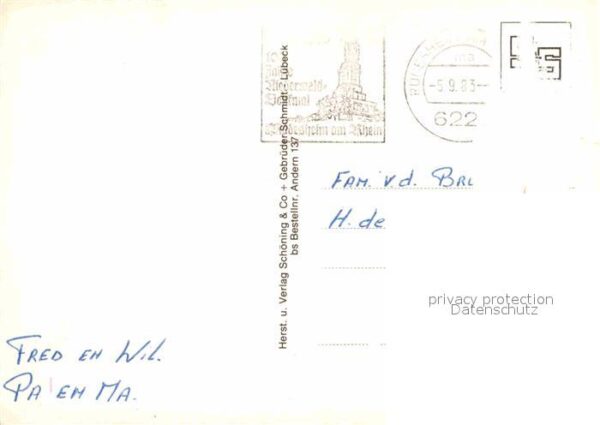 Jahre
Niederwald-
Denkmal
Rüdesheim am Rhein
RÜDESHEIM AM
ma
-5.9.83-
622
Herst. u. Verlag Schöning & Co + Gebrüder Schmidt · Lübeck
bs Bestellnr. Andern 137
FAM. v.d. BRU
H. de
privacy protection
Datenschutz
FRED EN WIL.
PA EN MA.